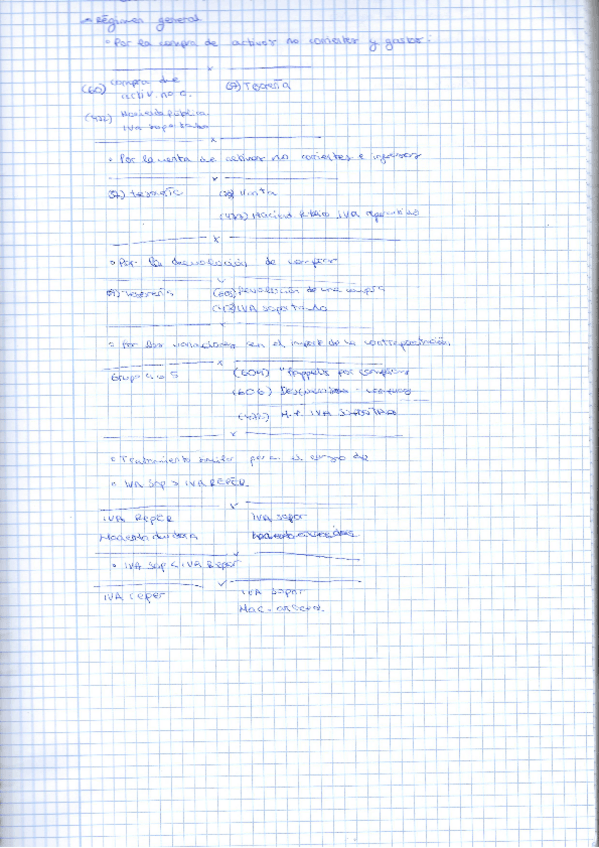 → Régimen general
• Por la compra de activos no corrientes y gastos:
x
(60) compra de (57) Tesorería
activ. no c.
(472) Hacienda pública
IVA soportado
x
• Por la venta de activos no corrientes e ingresos
x
57) tesorería (70) Venta
(477) Hacienda Pública IVA repercutido
x
• Por la devolución de compras
57) Tesorería (608) Devolución de una compra
(472) IVA soportado
x
• Por las variaciones en el importe de la contraprestación.
x
Grupo 4 o 5 (609) "Rappels por compras
(606) Descuentos
(472) H.P IVA SOPORTADO
x
• Tratamiento para el de
• IVA Sop > IVA REPER.
x
IVA REPER IVA sopor
Hacienda deudora
x
• IVA Sop < IVA Reper
IVA reper IVA Sopor
Hac. acreed.